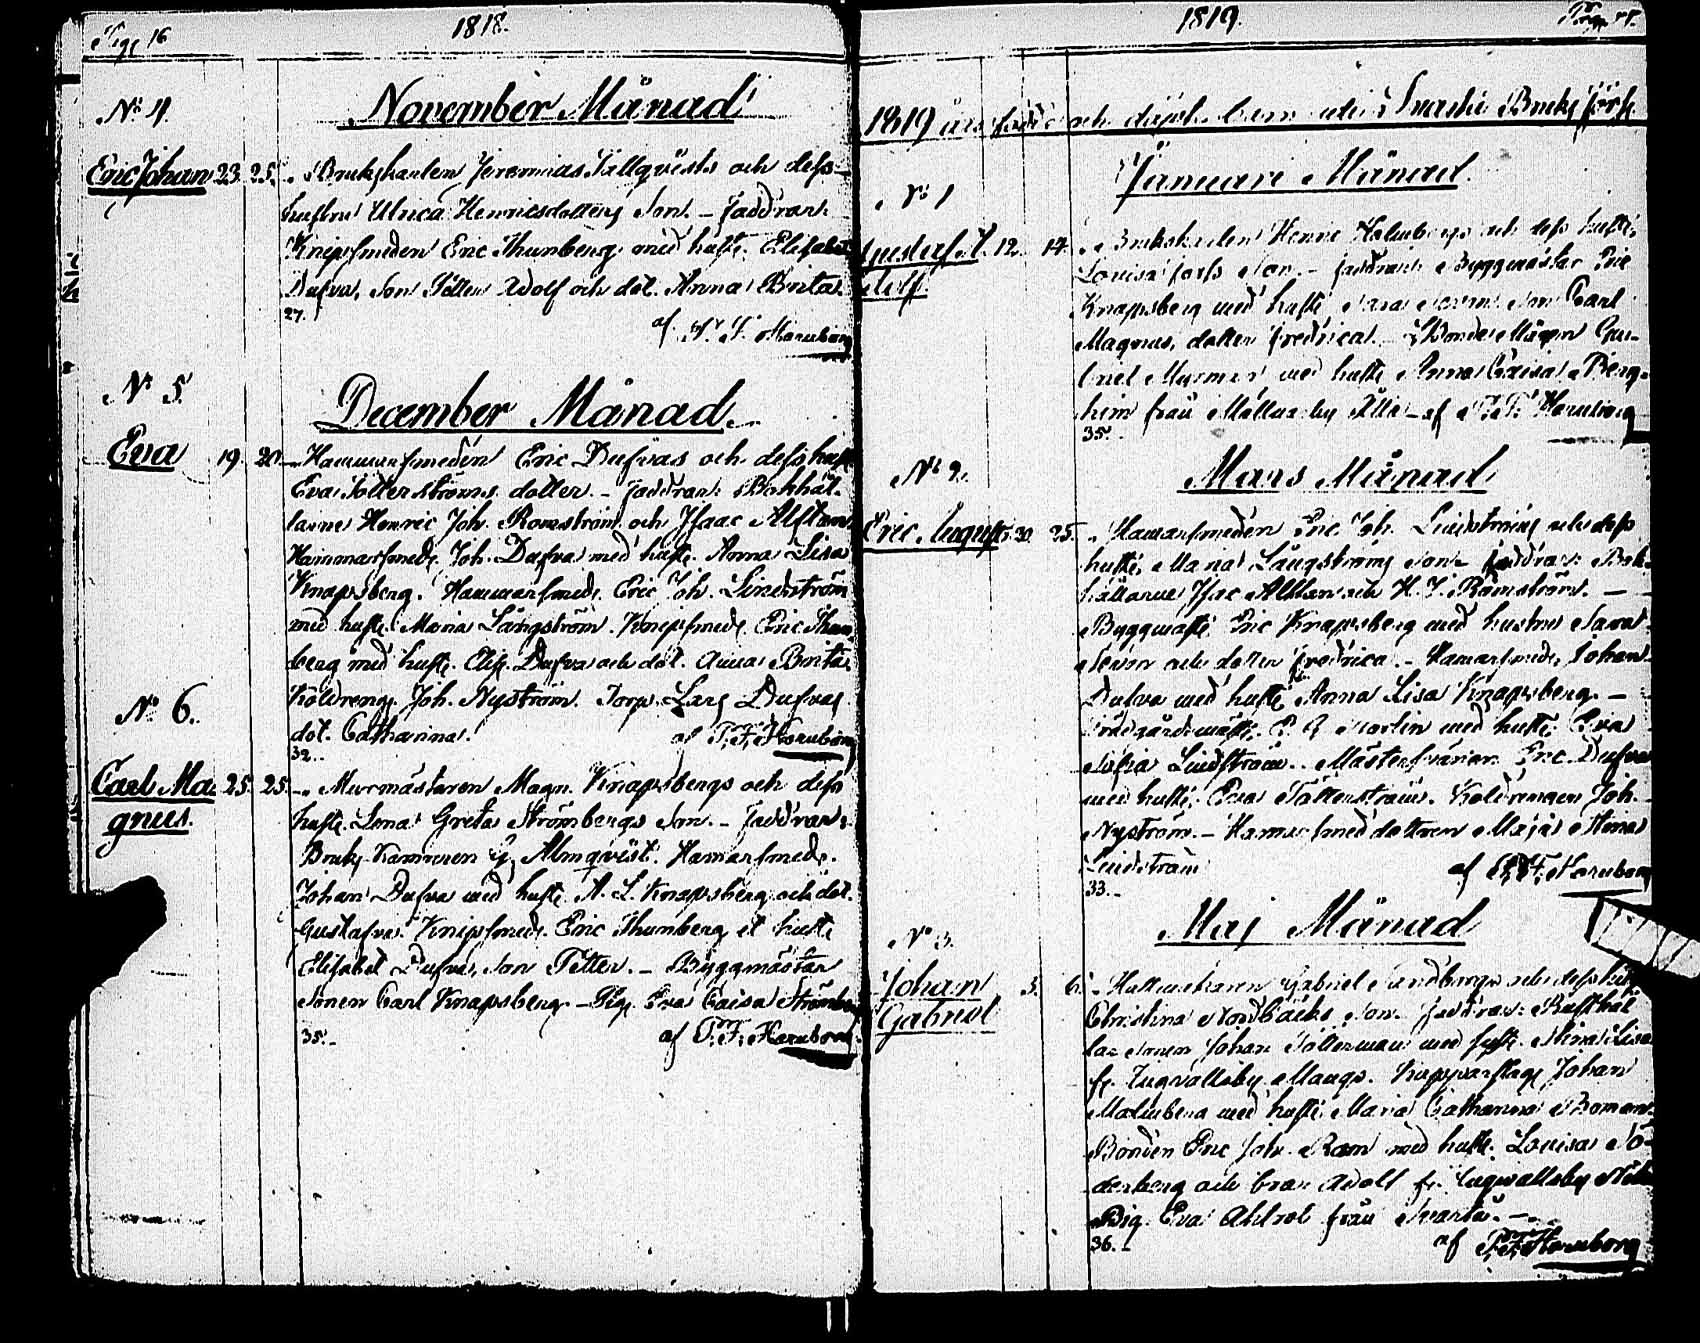 Pag 16
1818.
November Månad
No 4.
Eric Johan 23. 25. Brukskarlen Jeremias Tällqvists och dess
hustru Ulrica Henricsdotters Son. - faddrar:
Knipsmeden Eric Thunberg med hust: Elisabet
Dufva, Son Petter Adolf och dot. Anna Brita.
27.
af F. F. Hornborg
December Månad.
No 5.
Eva 19. 20. Hammarsmeden Eric Dufvas och dess hust
Eva Tötterströms dotter. - faddrar: Bokhål-
larne Henric Joh. Romström och Isaac Alftan
Hammarsmed. Joh. Dufva med hust. Anna Lisa
Knapsberg. Hammarsmed. Eric Joh. Lindström
med hust. Maria Långström. Knipsmed. Eric Thun-
berg med hust. Elis. Dufva och dot. Anna Brita.
Koldreng. Joh. Nyström. Torp. Lars Dufvas
dot. Catharina.
32.
af F. F. Hornborg
No 6.
Carl Ma- 25. 25. Murmästaren Magn. Knapsbergs och dess
gnus.
hust. Lena Greta Strömbergs Son. - faddrar:
Bruks Kamreren G. Almqvist. Hamarsmed.
Johan Dufva med hust. A. L. Knapsberg och dot.
Gustafva. Knipsmed. Eric Thunberg et hust.
Elisabet Dufva, Son Petter. - Byggmästar
Sonen Carl Knapsberg - Pig. Eva Caisa Strömberg
35.
af F. F. Hornborg
1819.
Pag.
1819 års födde och döpte barn uti Svarta Bruks
Januari Månad.
No 1
Gustaf A- 12. 14. Brukskarlen Henric Holmbergs och dess hust.
dolf.
Lovisa Son. - faddrar: Byggmästar Eric
Knapsberg med hust. Sara Son Carl
Magnus, dotter Fredrica. - Bonde
med hust. Anna Caisa Berg-
från by af F. F. Hornborg
35.
Mars Månad
No 2.
Eric August 20. 25. Hamarsmeden Eric Joh. Lindströms och dess
hust. Maria Långströms Son faddrar: Bok-
hållarne Isac Alftan och H. J. Romström.
Byggmäst. Eric Knapsberg med hustru Sara
och dotter Fredrica. - Hamarsmed. Johan
Dufva med hust. Anna Lisa Knapsberg. -
Trädgårdsmäst. med hust. Eva
Sofia Lindström. Mästersvänen Eric Dufva
med hust. Eva Tötterström. Koldrengen Joh.
Nyström. - Hamarsmed dottren Maja Stina
Lindström
33.
af F. F. Hornborg
Maj Månad
No 3.
Johan 3. 6. Gabriel Sandbergs och dess hust
Gabriel
Christina Nordbäcks Son. faddrar: Rusthål-
lar Sonen Johan med hust. Stina Lisa
fr. Ingvallsby. Johan
Malmberg med hust. Maria Catharina Boman.
Bonden Eric Joh. Ram med hust. Lovisa Sö-
derberg och bror Adolf fr. Ingvallsby
Pig. Eva Ahlrot från Svartå. -
36.
af F. F. Hornborg